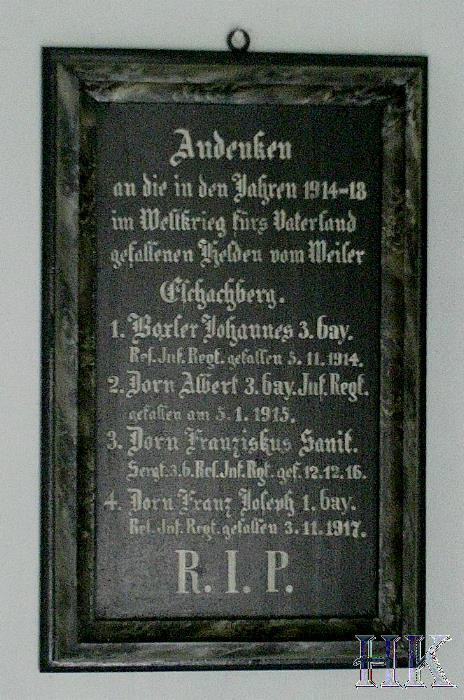 Andenken
an die in den Jahren 1914-18
im Weltkrieg fürs Vaterland
gefallenen Helden vom Weiler
Eschachberg.
1. Boxler Johannes 3. bay.
Res. Inf. Regt. gefallen 5.11.1914.
2. Dorn Albert 3. bay. Inf. Regt.
gefallen am 5.1.1915.
3. Dorn Franziskus Sanit.
Sergt. 3. b. Res. Inf. Rgt. gef. 12.12.16.
4. Dorn Franz Joseph 1. bay.
Res. Inf. Regt. gefallen 3.11.1917.
R. I. P.
HK